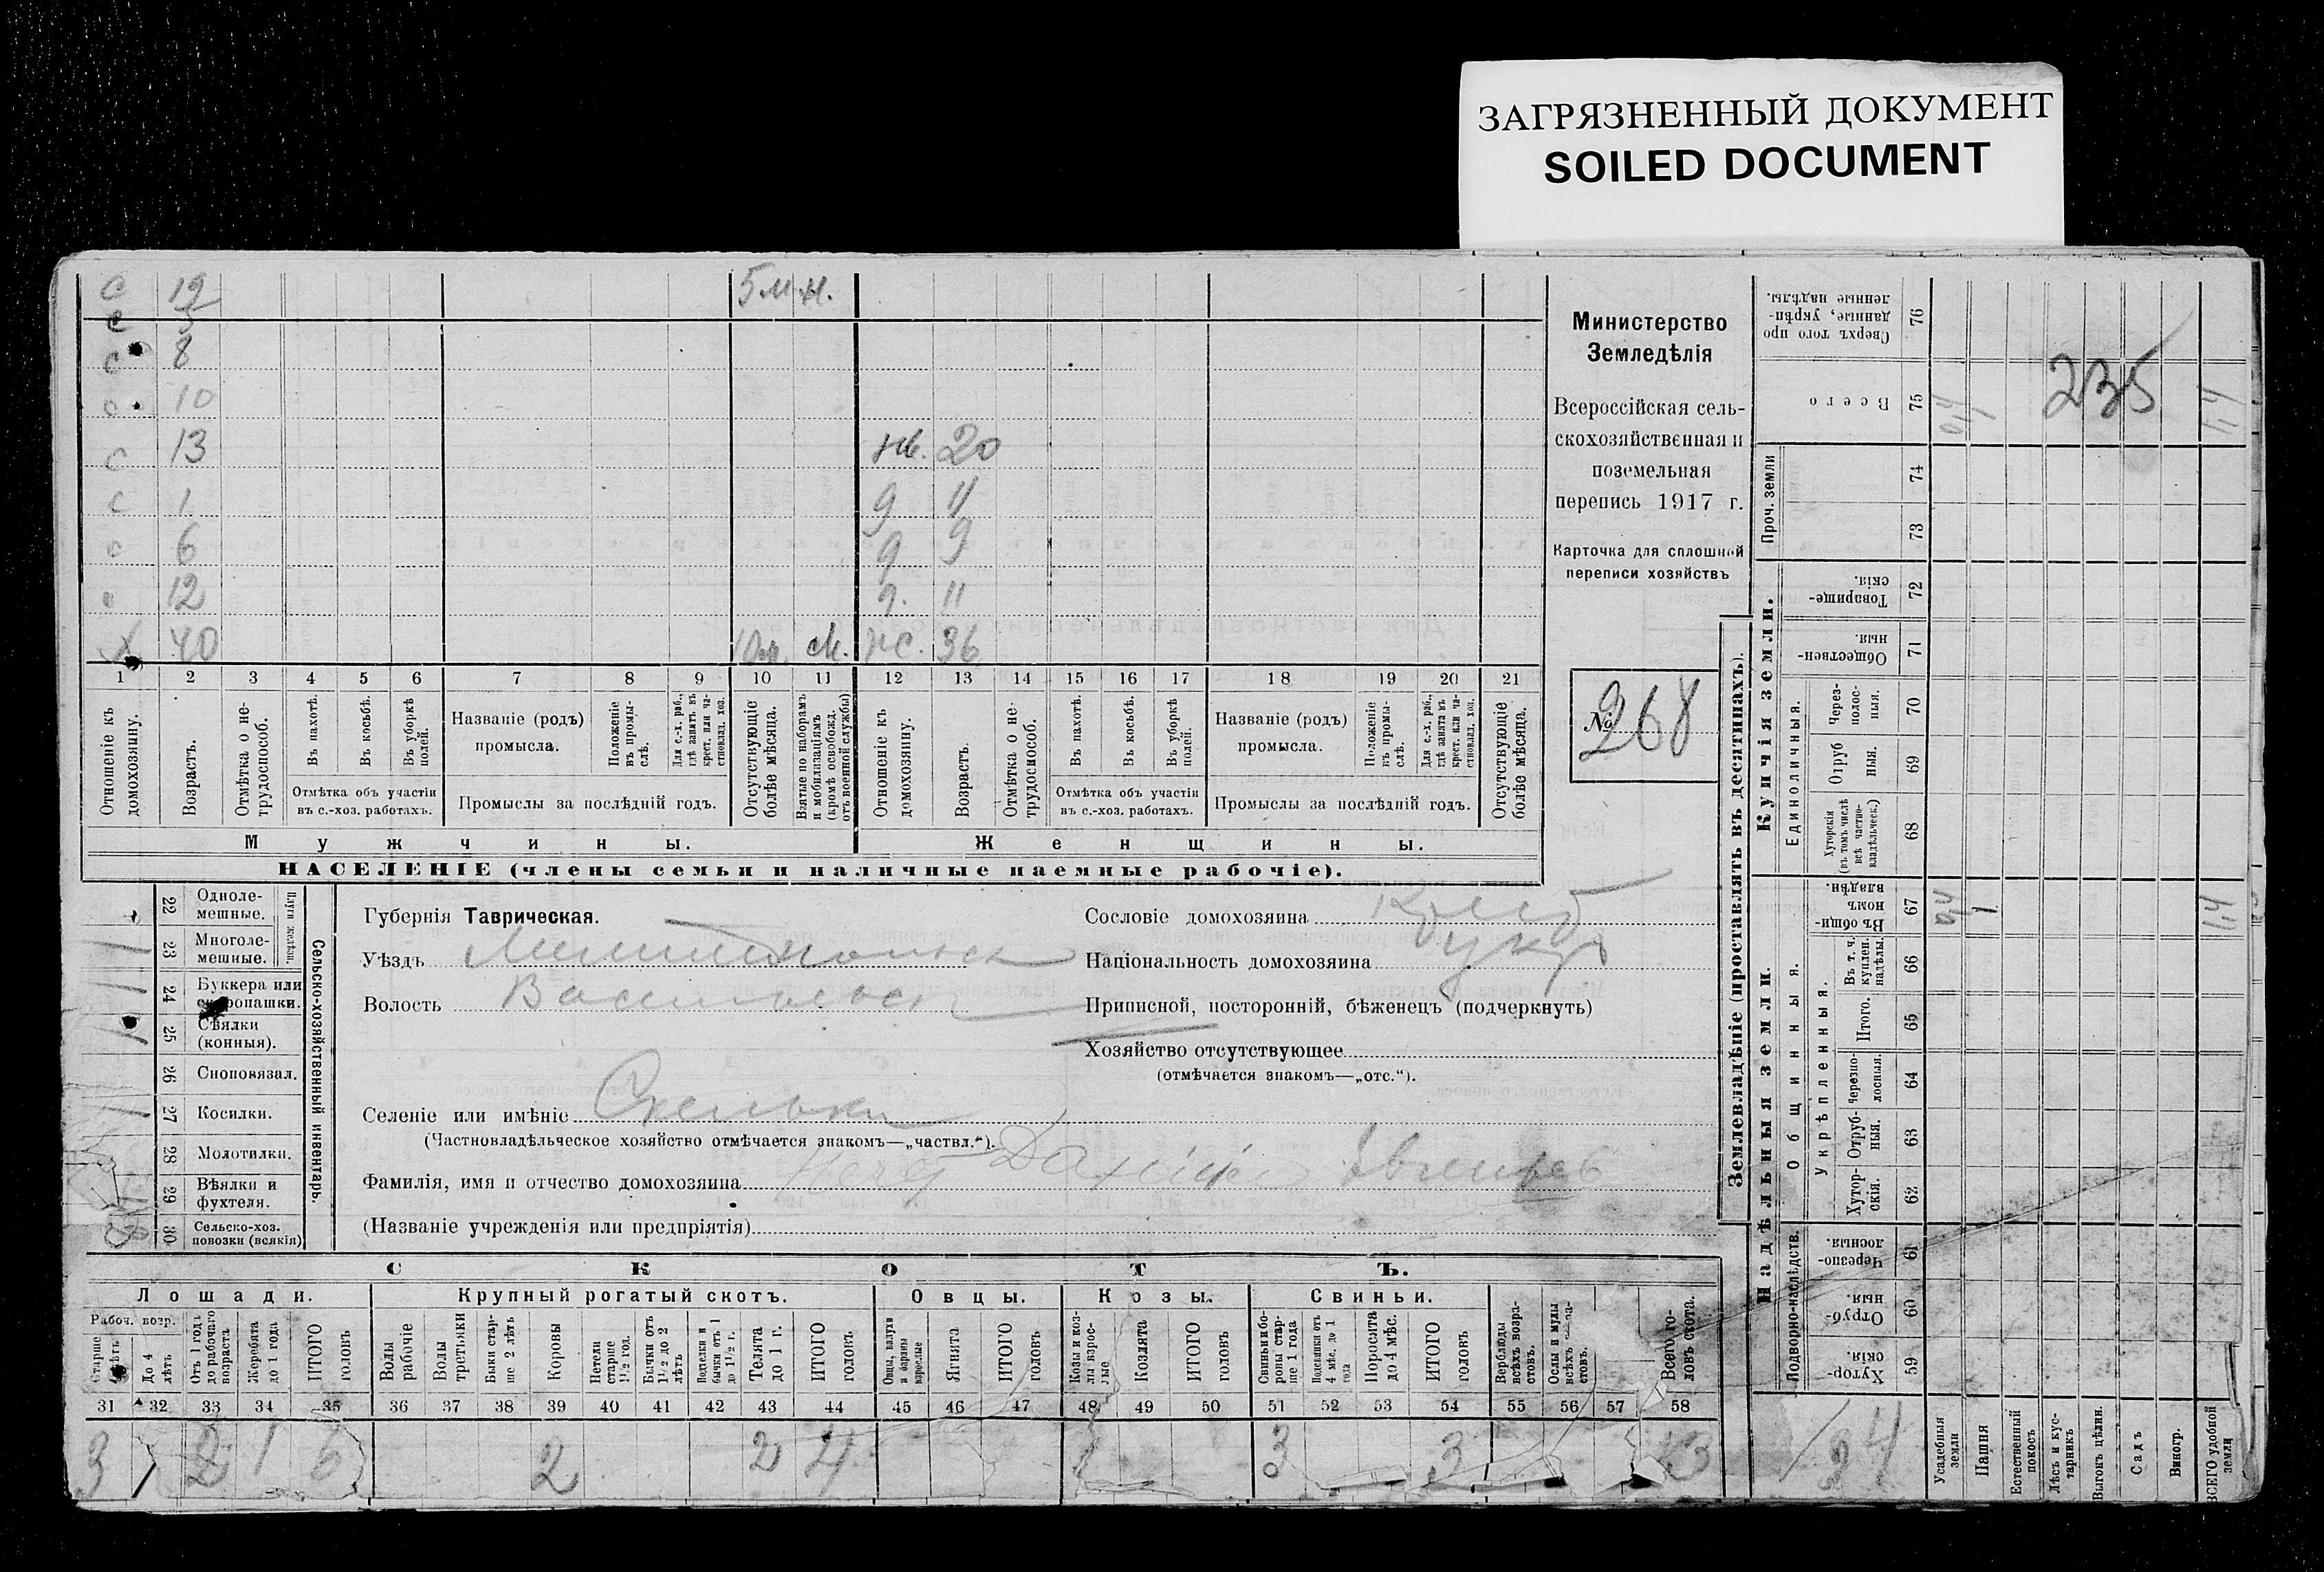 ЗАГРЯЗНЕННЫЙ ДОКУМЕНТ
SOILED DOCUMENT
с 19 5 м.
8
с 10
с 13 20
с 1 д 11
с 6 д 9
с 12 д. 11
х 40 36
1 2 3 4 5 6 7 8 9 10 11 12 13 14 15 16 17 18 19 20 21
Отношеніе къ домохозяину.
Возрастъ.
Отмѣтка о не-трудоспособ.
Въ пахотѣ.
Въ косьбѣ.
Въ уборкѣ полей.
Отмѣтка объ участіи въ с.-хоз. работахъ.
Названіе (родъ) промысла.
Положеніе въ промы-слѣ.
Для с.-х. раб., гдѣ занятъ въ крест. или ча-стновлад. хоз.
Промыслы за послѣдній годъ.
Отсутствующіе болѣе мѣсяца.
Взятые по наборамъ и мобилизаціямъ (кромѣ освобожд. отъ военной службы)
Отношеніе къ домохозяину.
Возрастъ.
Отмѣтка о не-трудоспособ.
Въ пахотѣ.
Въ косьбѣ.
Въ уборкѣ полей.
Отмѣтка объ участіи въ с.-хоз. работахъ.
Названіе (родъ) промысла.
Положеніе въ промы-слѣ.
Для с.-х. раб., гдѣ занята въ крест. или ча-стновлад. хоз.
Промыслы за послѣдній годъ.
Отсутствующіе болѣе мѣсяца.
Мужчины. Женщины.
НАСЕЛЕНІЕ (члены семьи и наличные наемные рабочіе).
Министерство
Земледѣлія
Всероссійская сель-
скохозяйственная и
поземельная
перепись 1917 г.
Карточка для сплошной
переписи хозяйствъ
№ 268
22 Одноле-мешные.
23 Многоле-мешные.
Плуги желѣзн.
24 Буккера или
25 Сѣялки (конныя).
26 Сноповязал.
27 Косилки.
28 Молотилки.
29 Вѣялки и фухтеля.
30 Сельско-хоз. повозки (всякія)
Сельско-хозяйственный инвентарь.
Губернія Таврическая.
Уѣздъ Мелитопольск
Волость Васильевск
Селеніе или имѣніе Скельки
(Частновладѣльческое хозяйство отмѣчается знакомъ—„частвл.“).
Фамилія, имя и отчество домохозяина
(Названіе учрежденія или предпріятія)
Сословіе домохозяина
Національность домохозяина укр
Приписной, посторонній, бѣженецъ (подчеркнуть)
Хозяйство отсутствующее
(отмѣчается знакомъ—„отс.“).
СКОТЪ.
Лошади. Крупный рогатый скотъ. Овцы. Козы. Свиньи.
Рабоч. возр.
Старше
До 4 лѣтъ
Отъ 1 года до рабочаго возраста
Жеребята до 1 года
ИТОГО головъ
Волы рабочіе
Волы третьяки
Быки стар-ше 2 лѣтъ
Коровы
Нетели старше 1½ год.
Бычки отъ 1½ до 2 лѣтъ
Подтелки и бычки отъ 1 до 1½ г.
Телята до 1 г.
ИТОГО головъ
Овцы, валухи и бараны взрослые
Ягнята
ИТОГО головъ
Козы и коз-лы взрос-лые
Козлята
ИТОГО головъ
Свиньи и бо-ровы стар-ше 1 года
Подсвинки отъ 4 мѣс. до 1 года
Поросята до 4 мѣс.
ИТОГО головъ
Верблюды всѣхъ возра-стовъ.
Ослы и мулы всѣхъ
Всего го-ловъ скота.
31 32 33 34 35 36 37 38 39 40 41 42 43 44 45 46 47 48 49 50 51 52 53 54 55 56 57 58
3 2 1 6 2 2 4 3 3 13
Землевладѣніе (проставлять въ десятинахъ).
Надѣльныя земли.
Купчія земли.
Подворно-наслѣдств.
Общинныя.
Укрѣпленныя.
Единоличныя.
Проч. земли
76 Сверхъ того про данные, укрѣп-ленные надѣлы.
75 Всего
74
73
72 Товарище-скія.
71 Обществен-ныя.
70 Через-полос-ныя.
69 Отруб ныя.
68 Хуторскія (въ томъ числѣ всѣ частно-владѣльческ.)
67 Въ общи номъ владѣн.
66 Въ т. ч. куплен. надѣлы.
65 Итого.
64 Черезпо-лосныя.
63 Отруб-ныя.
62 Хутор-скія.
61 Черезпо-лосныя.
60 Отруб-ныя.
59 Хутор-скія.
Усадебныя земли
Пашня
Естественный покосъ
Лѣсъ и кус-тарникъ
Выгонъ цѣлин.
Садъ
Виногр.
ВСЕГО удобной земли
0,4 1 1,4
235
0,4 1 1,4